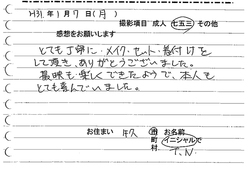 H31年1月7日(月)
撮影項目 成人 七五三 その他
感想をお願いします
とても丁寧に・メイク・セット・着付けを
して頂き、ありがとうございました。
撮影も楽しくできたようで、本人も
とても喜んでいました。
お住まい 市 お名前
町 イニシャルで
村 T.N.